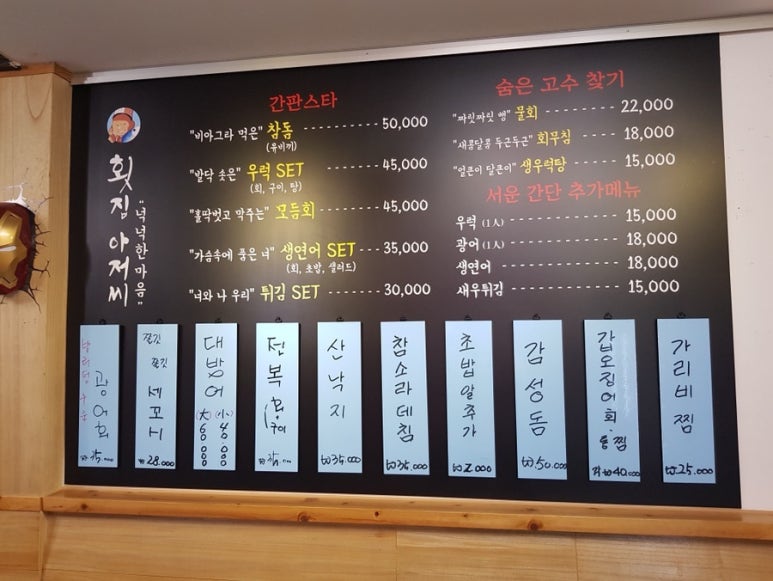 횟집아저씨
"넉넉한마음"
간판스타
"비아그라 먹은" 참돔 50,000
(유비끼)
"발닥 솟은" 우럭 SET 45,000
(회, 구이, 탕)
"홀딱벗고 막주는" 모듬회 45,000
"가슴속에 품은 너" 생연어 SET 35,000
(회, 초밥, 샐러드)
"너와 나 우리" 튀김 SET 30,000
숨은 고수 찾기
"짜릿짜릿 쌩" 물회 22,000
"새콤달콤 두근두근" 회무침 18,000
"얼큰이 달큰이" 생우럭탕 15,000
서운 간단 추가메뉴
우럭 (1人) 15,000
광어 (1人) 18,000
생연어 18,000
새우튀김 15,000
광어회
35.000
쫄깃
쫄깃
세꼬시
₩28.000
대방어
(大) (小)
60 40
전복
회
구이
산낙지
₩35.000
참소라데침
₩35.000
초밥알추가
₩2000
감성돔
₩50.000
갑오징어회.통찜
₩40.000
가리비찜
₩25.000